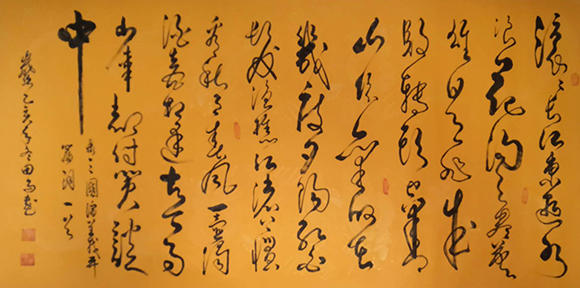 滚滚长江东逝水
浪花淘尽英
雄是非成
败转头空青
山依旧在
几度夕阳红白
发渔樵江渚上惯
看秋月春风一壶浊
酒喜相逢古今多
少事都付笑谈
中
三国演义开
篇词一首